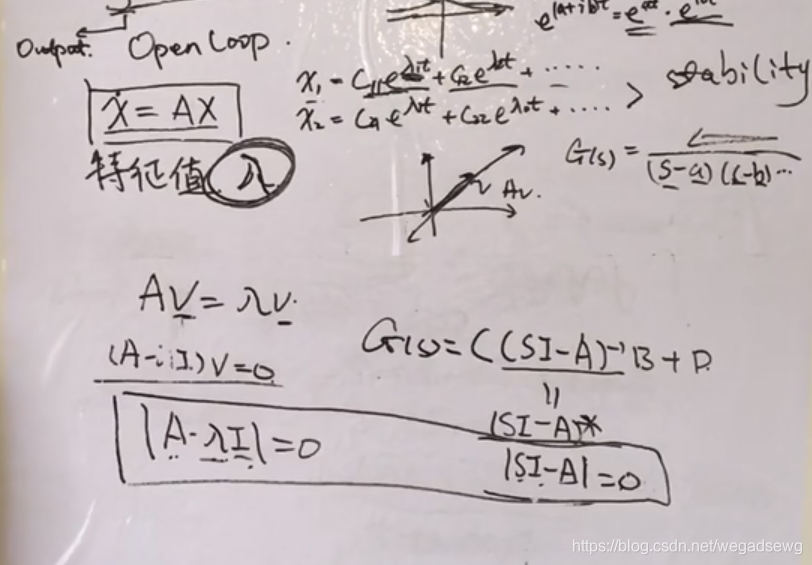 e^(a+ib)t = e^at · e^ibt
Output. Open Loop.
x₁ = C₁₁e^λ₁t + C₁₂e^λ₂t + ......
x₂ = C₂₁e^λ₁t + C₂₂e^λ₂t + .... > stability
Ẋ = AX
特征值 λ
G(s) = / (s-a) (s-b) ...
v Av.
Av = λv.
(A-λI)v=0
G(s) = C(SI-A)⁻¹B + D
||
(SI-A)*
|A-λI|=0
|SI-A|=0
https://blog.csdn.net/wegadsewg